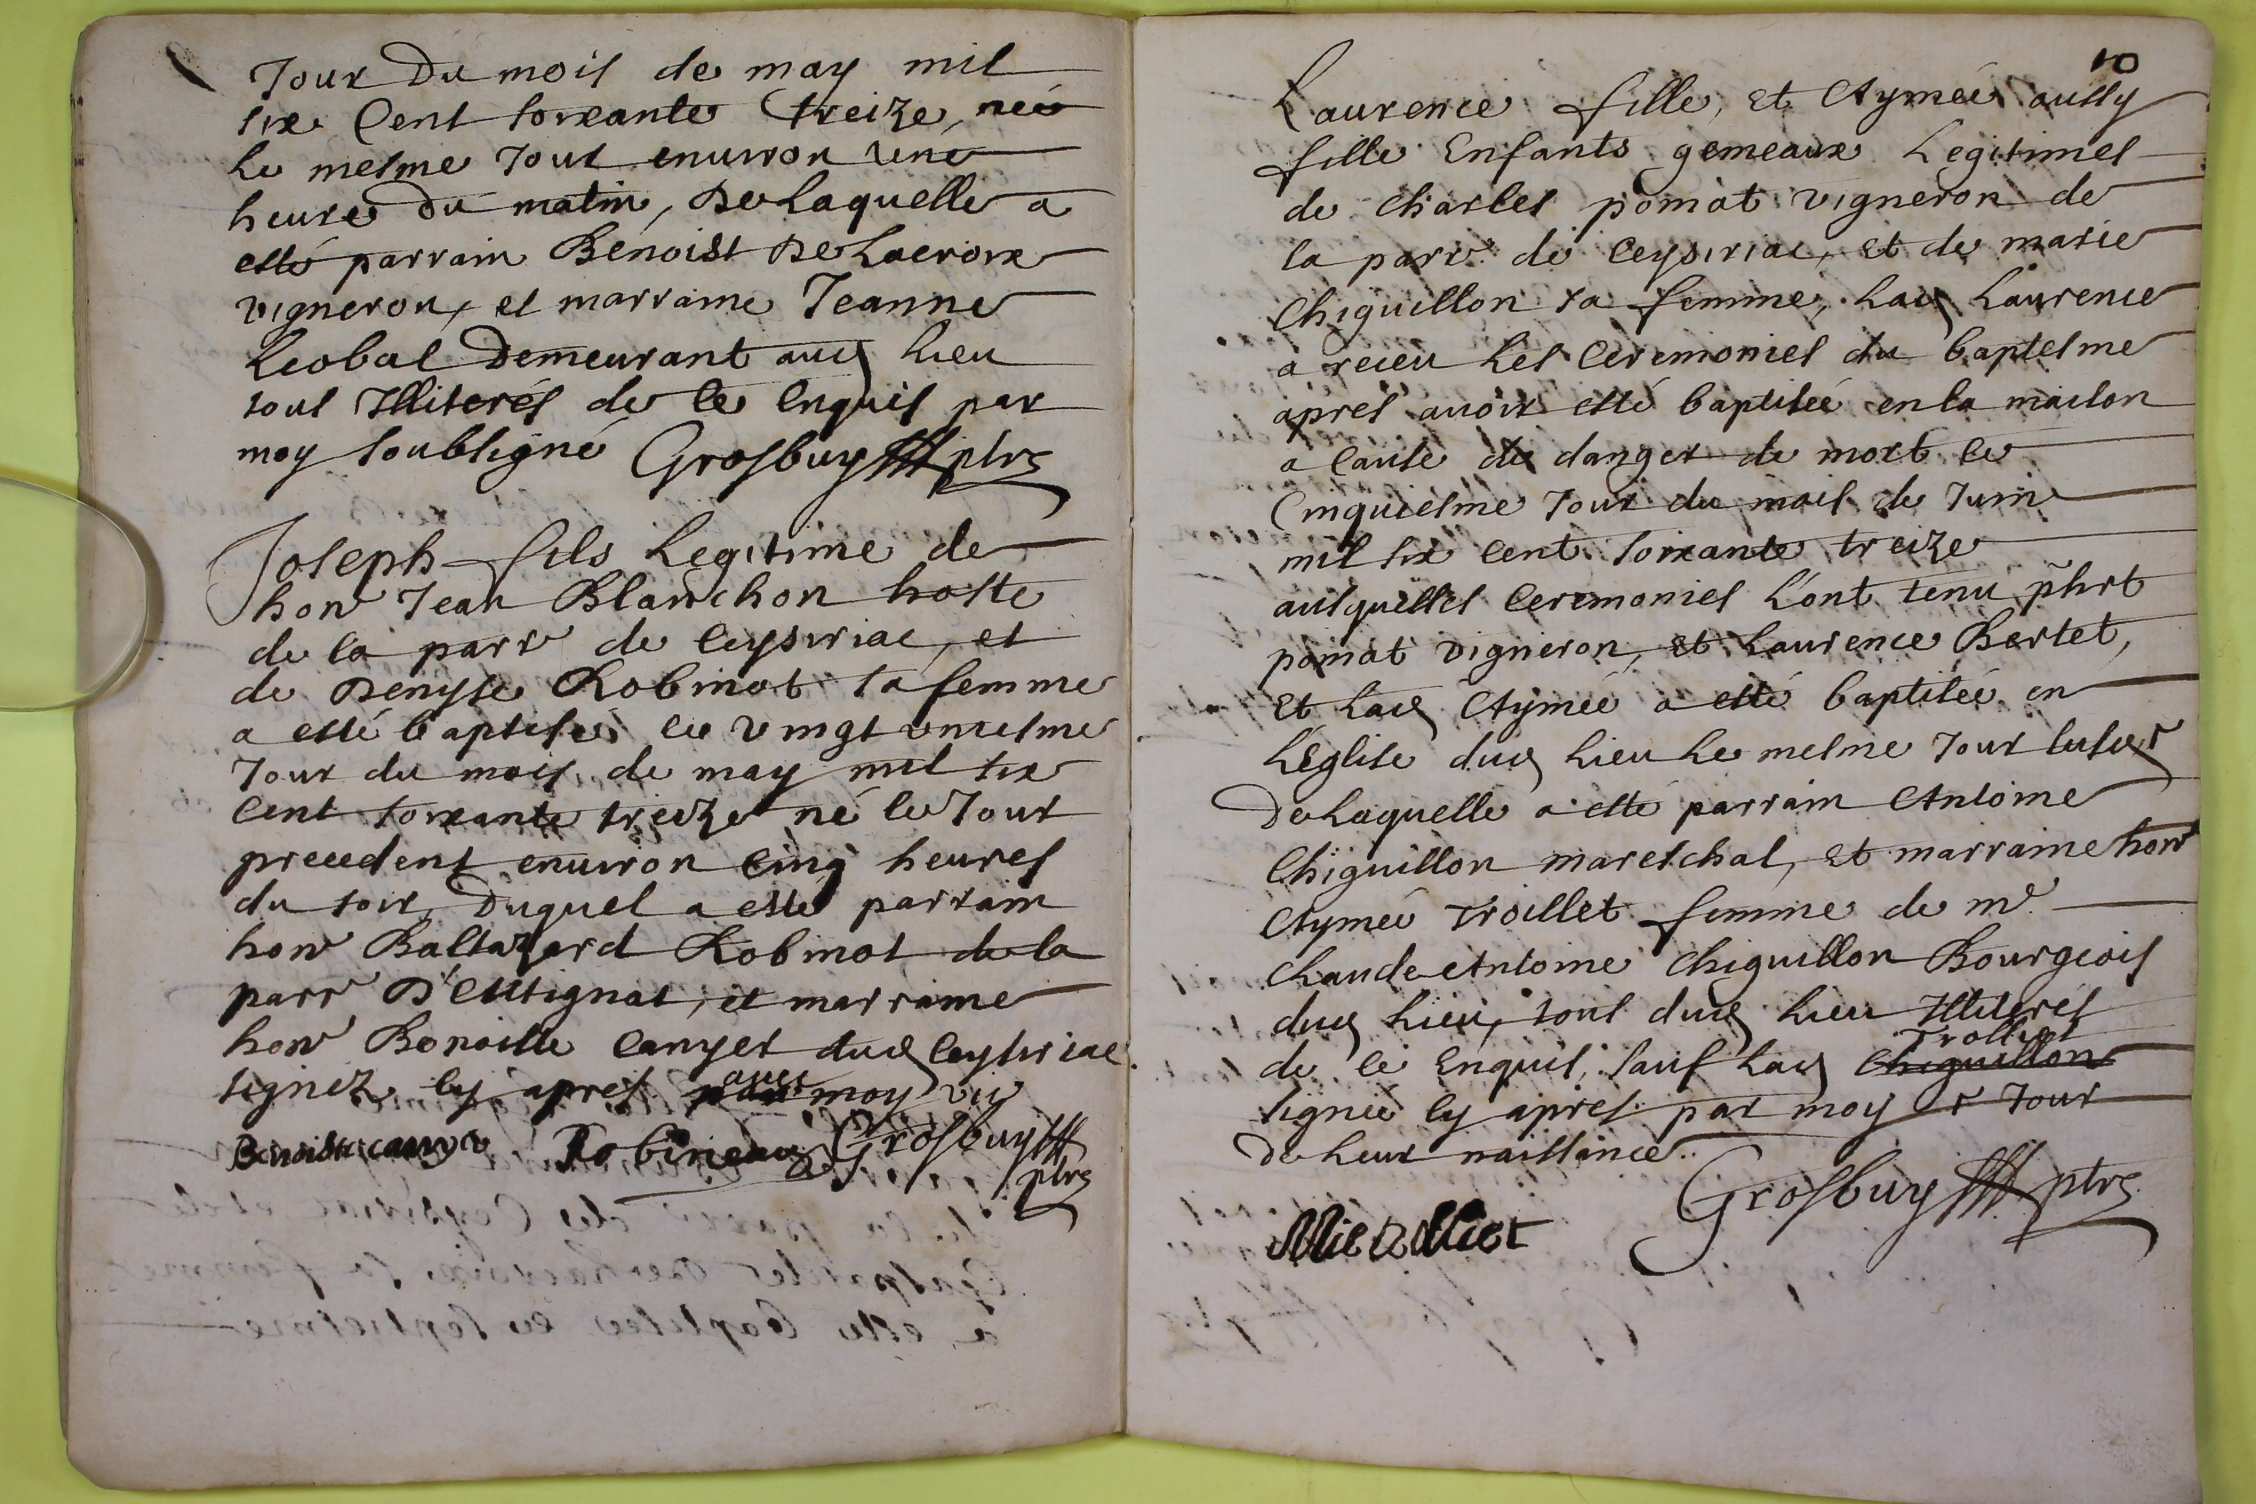 Jour Du mois de may mil
six Cent soixante treize, née
Le mesme Jour enuiron une
heure du matin, De Laquelle a
esté parrain Bénoist De Lacroix
vigneron, et marraine Jeanne
Leobal Demeurant aud Lieu
tous Illiterés de ce enquis par
moy soubsigné Grosbuy ptre
Joseph fils Legitime de
honr Jean Blanchon hoste
de la parr de Ceysiriac, et
de Denyse Robinot sa femme
a esté baptisé le vingt uniesme
Jour du mois de may mil six
Cent soixante treize né le Jour
precedent enuiron Cinq heures
du soir, Duquel a esté parrain
honr Baltazard Robinot de la
parr D'Attignat, et marraine
honr Benoiste Canyet dud Ceysiriac
signez cy apres auec moy
Benoiste canyet Robineau Grosbuy
ptre
10
Laurence fille, et Aymée aussy
fille Enfants gemeaux Legitimes
de Charles pomat vigneron de
la parr de Ceysiriac, et de marie
Chiguillon sa femme, Lad Laurence
a receu Les Ceremonies du baptesme
apres auoir esté baptisée en la maison
a Cause du danger de mort le
Cinquiesme Jour du mois de Juin
mil six Cent soixante treize
ausquelles Ceremonies L'ont tenu phrt
pomat vigneron, et Laurence Bertet,
Et Lad Aymée a esté baptisée en
L'église dud Lieu Le mesme Jour susd
De Laquelle a esté parrain Antoine
Chiguillon mareschal, et marraine honr
Aymée Troillet femme de mr
Claude Antoine Chiguillon Bourgeois
dud Lieu, tous dud Lieu Illiterés
Trolliet
de ce Enquis, sauf Lad Chiguillon
signée cy apres par moy r Jour
de Leur naissance.
Grosbuy ptre